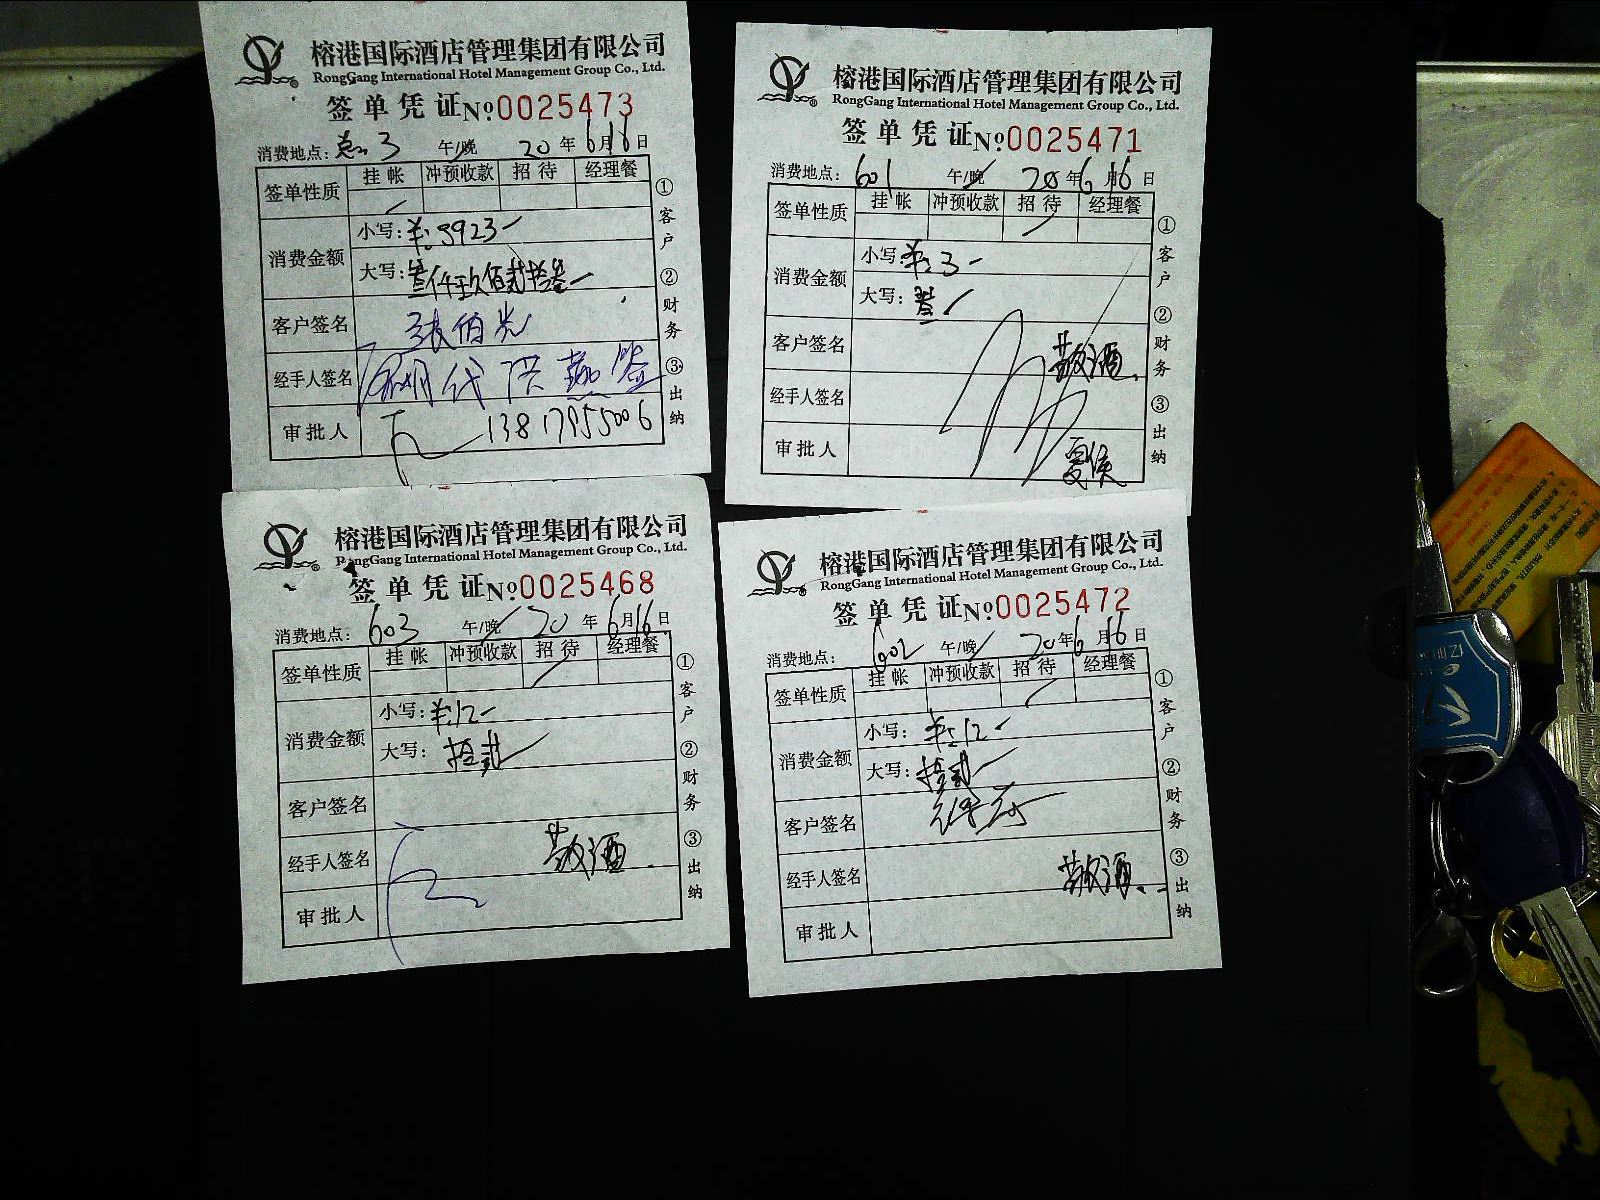 榕港国际酒店管理集团有限公司
RongGang International Hotel Management Group Co., Ltd.
签单凭证 №0025473
消费地点：总3 午/晚 20年6月16日
签单性质 挂帐 冲预收款 招待 经理餐
消费金额 小写：¥:3923-
大写：叁仟玖佰贰拾叁
客户签名 张伯光
经手人签名
审批人 13817955006
①客户 ②财务 ③出纳
榕港国际酒店管理集团有限公司
RongGang International Hotel Management Group Co., Ltd.
签单凭证 №0025471
消费地点：601 午/晚 20年6月16日
签单性质 挂帐 冲预收款 招待 经理餐
消费金额 小写：¥:3-
大写：叁
客户签名 敬酒.
经手人签名
审批人 夏侯
①客户 ②财务 ③出纳
榕港国际酒店管理集团有限公司
RongGang International Hotel Management Group Co., Ltd.
签单凭证 №0025468
消费地点：603 午/晚 20年6月16日
签单性质 挂帐 冲预收款 招待 经理餐
消费金额 小写：¥:12-
大写：拾贰
客户签名
经手人签名 敬酒.
审批人
①客户 ②财务 ③出纳
榕港国际酒店管理集团有限公司
RongGang International Hotel Management Group Co., Ltd.
签单凭证 №0025472
消费地点：602 午/晚 20年6月16日
签单性质 挂帐 冲预收款 招待 经理餐
消费金额 小写：¥:12-
大写：拾贰
客户签名
经手人签名 敬酒.
审批人
①客户 ②财务 ③出纳